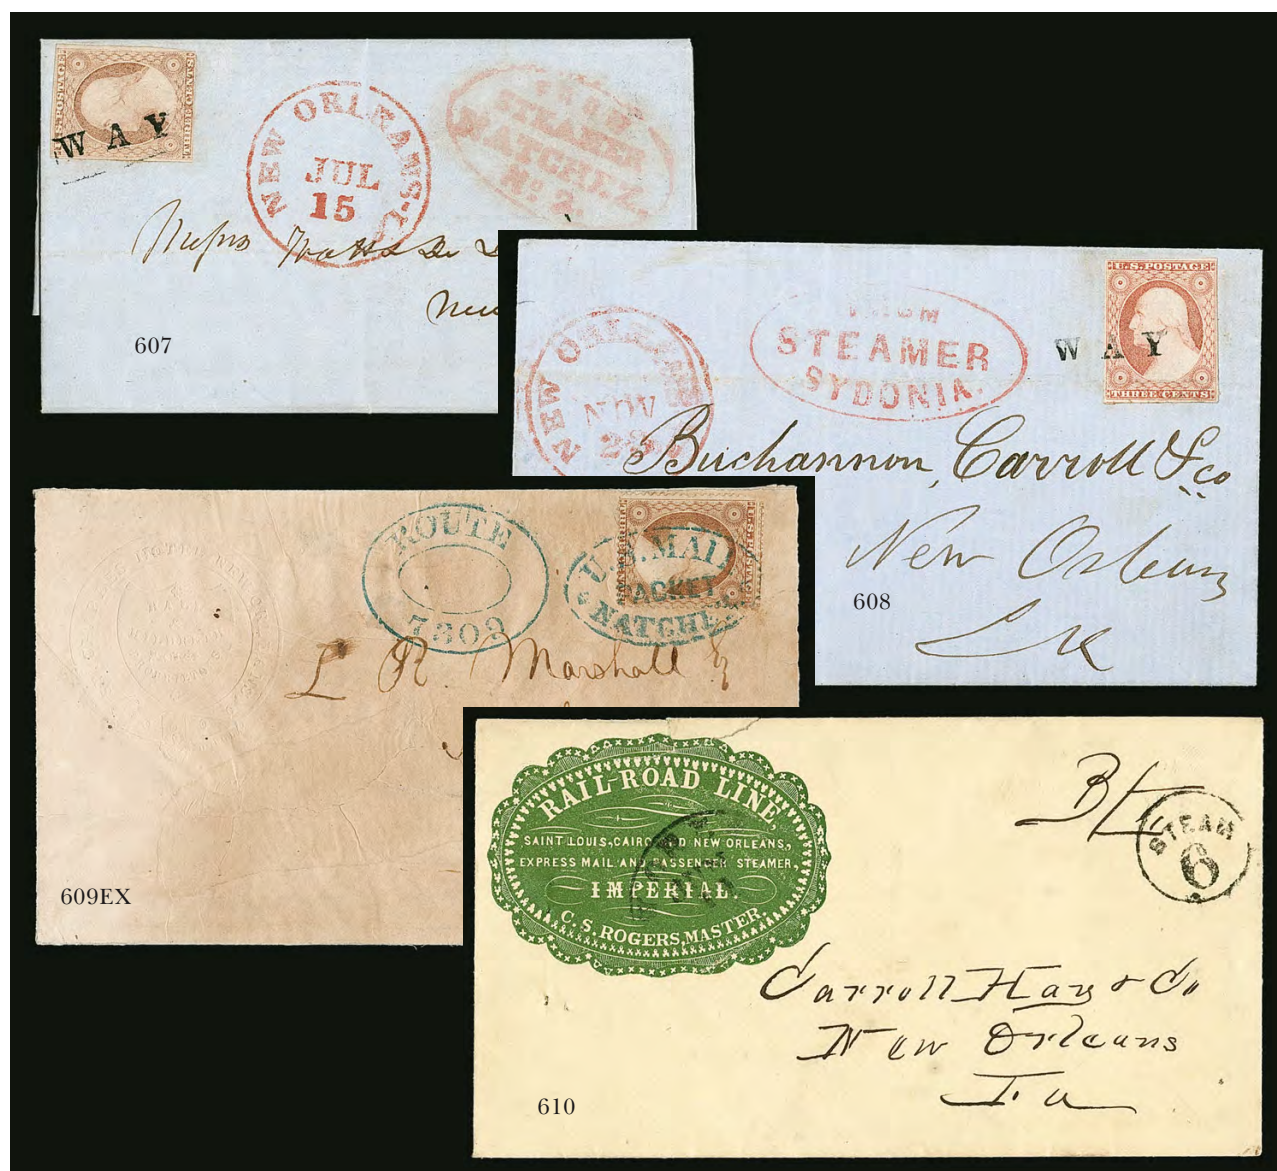 U.S. POSTAGE
THREE CENTS
WAY
NEW ORLEANS-L
JUL
15
FROM
STEAMER
NATCHEZ.
No. 2.
607
U.S. POSTAGE
THREE CENTS
WAY
FROM
STEAMER
SYDONIA.
NEW ORLEANS
NOV
28
Buchannon, Carroll & Co
New Orleans
La
608
ROUTE
7309
U.S. MAIL
PACKET
NATCHEZ
L. R. Marshall
609EX
RAIL-ROAD LINE,
SAINT LOUIS, CAIRO AND NEW ORLEANS,
EXPRESS MAIL AND PASSENGER STEAMER,
IMPERIAL.
C. S. ROGERS, MASTER.
STEAM
6
Carroll Hay & Co
New Orleans
La
610